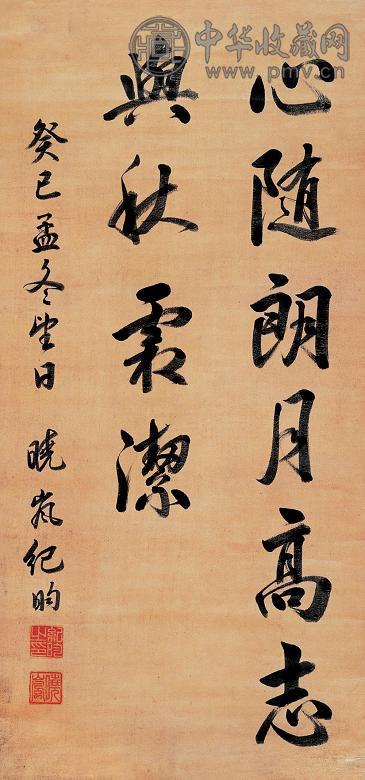 中华收藏网
www.pmv.cn
心随朗月高志
與秋霜潔
癸巳孟冬望日 曉嵐紀昀